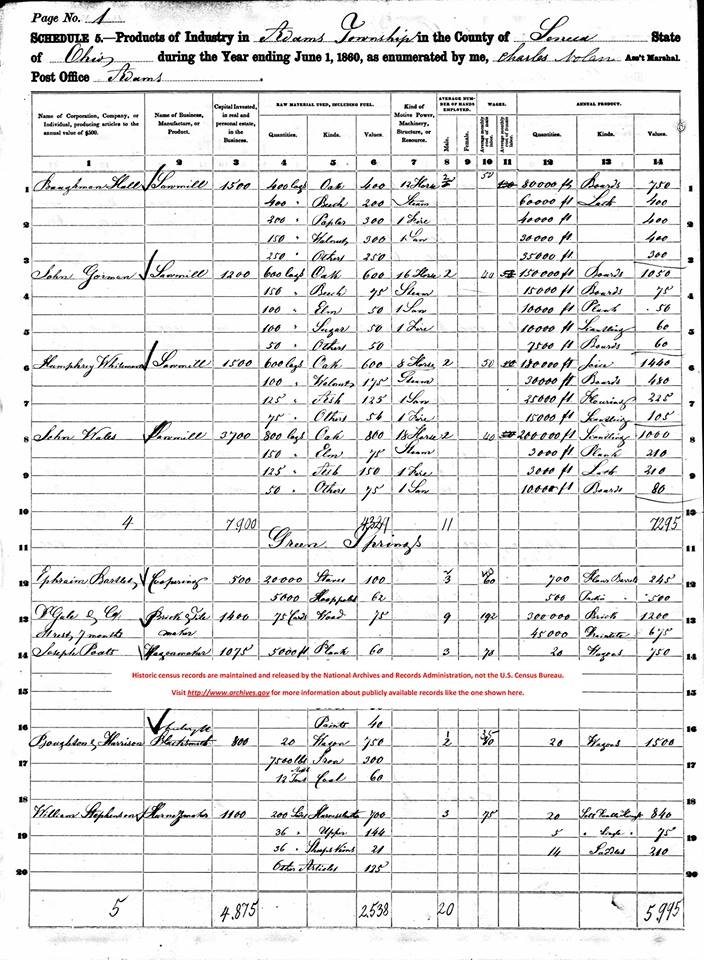 Page No. 1
SCHEDULE 5.—Products of Industry in Adams Township in the County of Seneca State
of Ohio during the Year ending June 1, 1860, as enumerated by me, Charles Nolan Ass't Marshal.
Post Office Adams.
Name of Corporation, Company, or Individual, producing articles to the annual value of $500.
Name of Business, Manufacture, or Product.
Capital Invested, in real and personal estate, in the Business.
RAW MATERIAL USED, INCLUDING FUEL.
Quantities. Kinds. Values.
Kind of Motive Power, Machinery, Structure, or Resource.
AVERAGE NUMBER OF HANDS EMPLOYED.
Male. Female.
WAGES.
Average monthly cost of male labor.
Average monthly cost of female labor.
ANNUAL PRODUCT.
Quantities. Kinds. Values.
1 2 3 4 5 6 7 8 9 10 11 12 13 14
1 Baughman Hall Sawmill 1500 400 logs Oak 400 12 Horse 50 80000 ft Boards 750 1
400 " Beech 200 Steam 60000 ft Lath 400
2 200 " Poplar 300 1 Fire 40000 ft 400 2
150 " Walnut 300 1 Saw 30000 ft 400
3 250 " Others 250 35000 ft 300 3
John Gorman Sawmill 1200 600 logs Oak 600 16 Horse 2 40 150000 ft Boards 1050
4 150 " Beech 75 Steam 15000 ft Boards 75 4
100 " Elm 50 1 Saw 10000 ft Plank 50
5 100 " Sugar 50 1 Fire 10000 ft Scantling 60 5
50 " Others 50 7500 ft Boards 60
6 Humphrey Whiteman Sawmill 1500 600 logs Oak 600 8 Horse 2 50 180000 ft 1440 6
100 " Walnut 175 Steam 30000 ft Boards 480
7 125 " Ash 125 1 Saw 25000 ft Flouring 225 7
75 " Others 56 1 Fire 15000 ft Scantling 105
8 John Wales Sawmill 3700 800 logs Oak 800 18 Horse 2 40 200000 ft Scantling 1000 8
150 " Elm 75 Steam 3000 ft Plank 210
9 125 " Ash 150 1 Fire 3000 ft Lath 210 9
50 " Others 75 1 Saw 10000 ft Boards 80
10 4 7900 11 7295 10
11 Green Springs 11
12 Ephraim Bartlett Coopering 500 20000 Staves 100 3 60 700 Flour Barrels 245 12
5000 Hooppoles 62 500 500
13 Gale & Co Brick & Tile 1400 75 Cords Wood 75 9 192 300000 Brick 1200 13
7 months maker 45000 Draintile 675
14 Joseph Poats Wagonmaker 1075 5000 ft Plank 60 3 78 20 Wagons 750 14
Historic census records are maintained and released by the National Archives and Records Administration, not the U.S. Census Bureau.
15 Visit http://www.archives.gov for more information about publicly available records like the one shown here. 15
16 Paints 40 16
Boughton & Harrison Blacksmith 800 20 Wagon 750 2 20 Wagons 1500
17 7500 lbs Iron 300 17
12 Tons Coal 60
18 William Stephenson Harnessmaker 1100 200 Harness leather 700 3 75 20 840 18
19 36 " Upper 144 5 " Single " 75 19
36 " Sheep Skins 21 14 Saddles 210
20 Other Articles 125 20
5 4.875 2.538 20 5.995